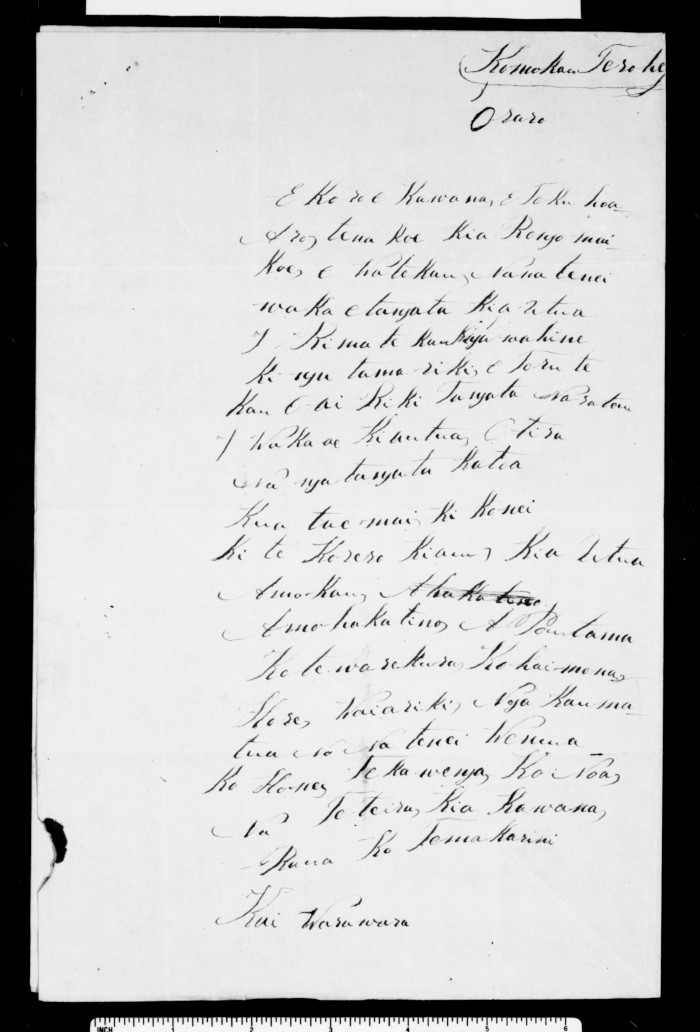 Komokau Terohe
Oraro
E Koroe Kawana, E Toku hoa
Aro, tena koe Kia Rongo mai
Koe, e Watekau, Nana tenei
waka e tangata Kia Utua
I Rima te kau nga wahine
Ki nga tama-riki, E Toru te
Kau E ai Riki Tangata Naratou
I Waka ae Kiautua, Otira
Na nga tangata Katoa
Kua tae-mai, ki Konei
Ki te Korero Kiau, Kia Utua
Amokau,
Amohakatino, A Poutama
Ko te warekura, Ko hai-mona,
Hore, Waiariki, Nga Kau-ma-
tua No Na tenei Wenua
Ko Hone, Te Kawenga, Koi Noa,
Na Te teira, Kia Kawana,
Raua Ko Temakarini
Kai Warawara
INCH 1 2 3 4 5 6